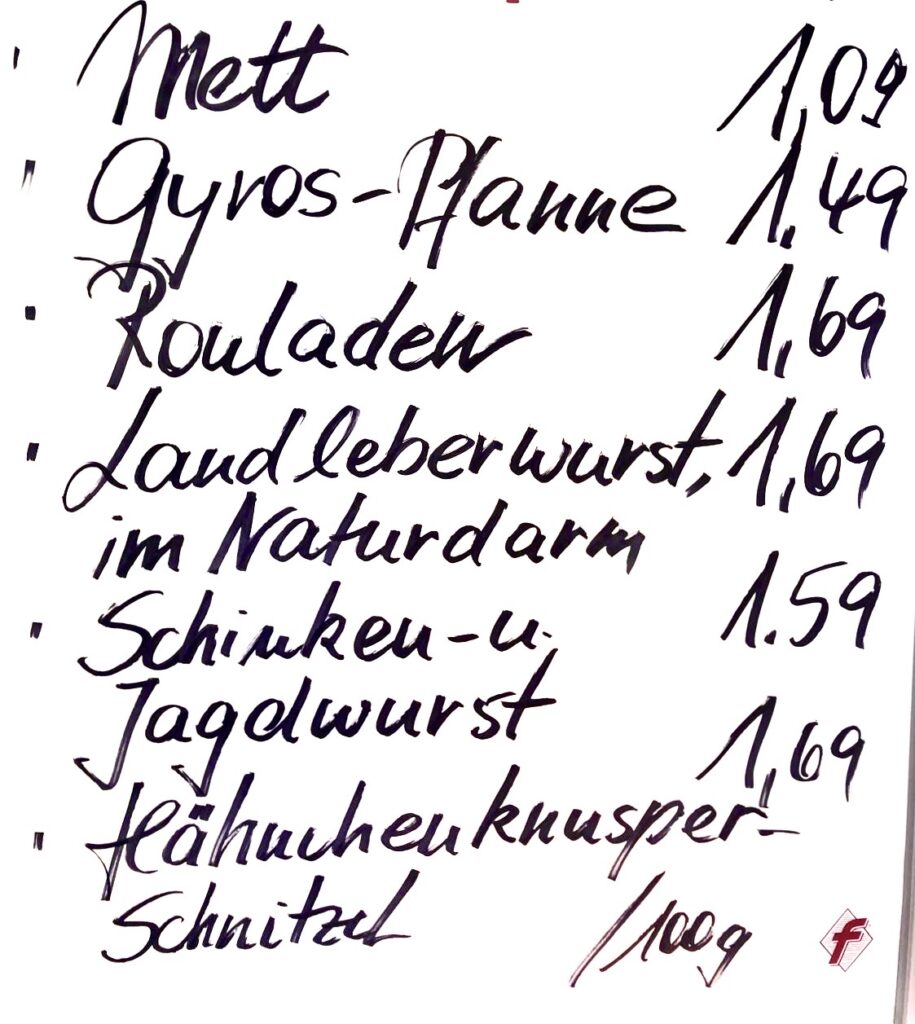 Mett 1,09
Gyros-Pfanne 1.49
Rouladen 1,69
Landleberwurst, 1,69
im Naturdarm
Schinken-u. 1.59
Jagdwurst
1,69
Hähnchenknusper-
Schnitzel /100g
f